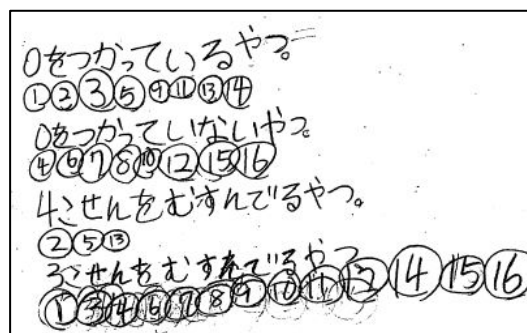 0をつかっているやつ。
①②③⑤⑨⑪⑬⑭
0をつかっていないやつ。
④⑥⑦⑧⑩⑫⑮⑯
4こせんをむすんでるやつ。
②⑤⑬
3こせんをむすんでるやつ
①③④⑥⑦⑧⑨⑩⑪⑫⑭⑮⑯